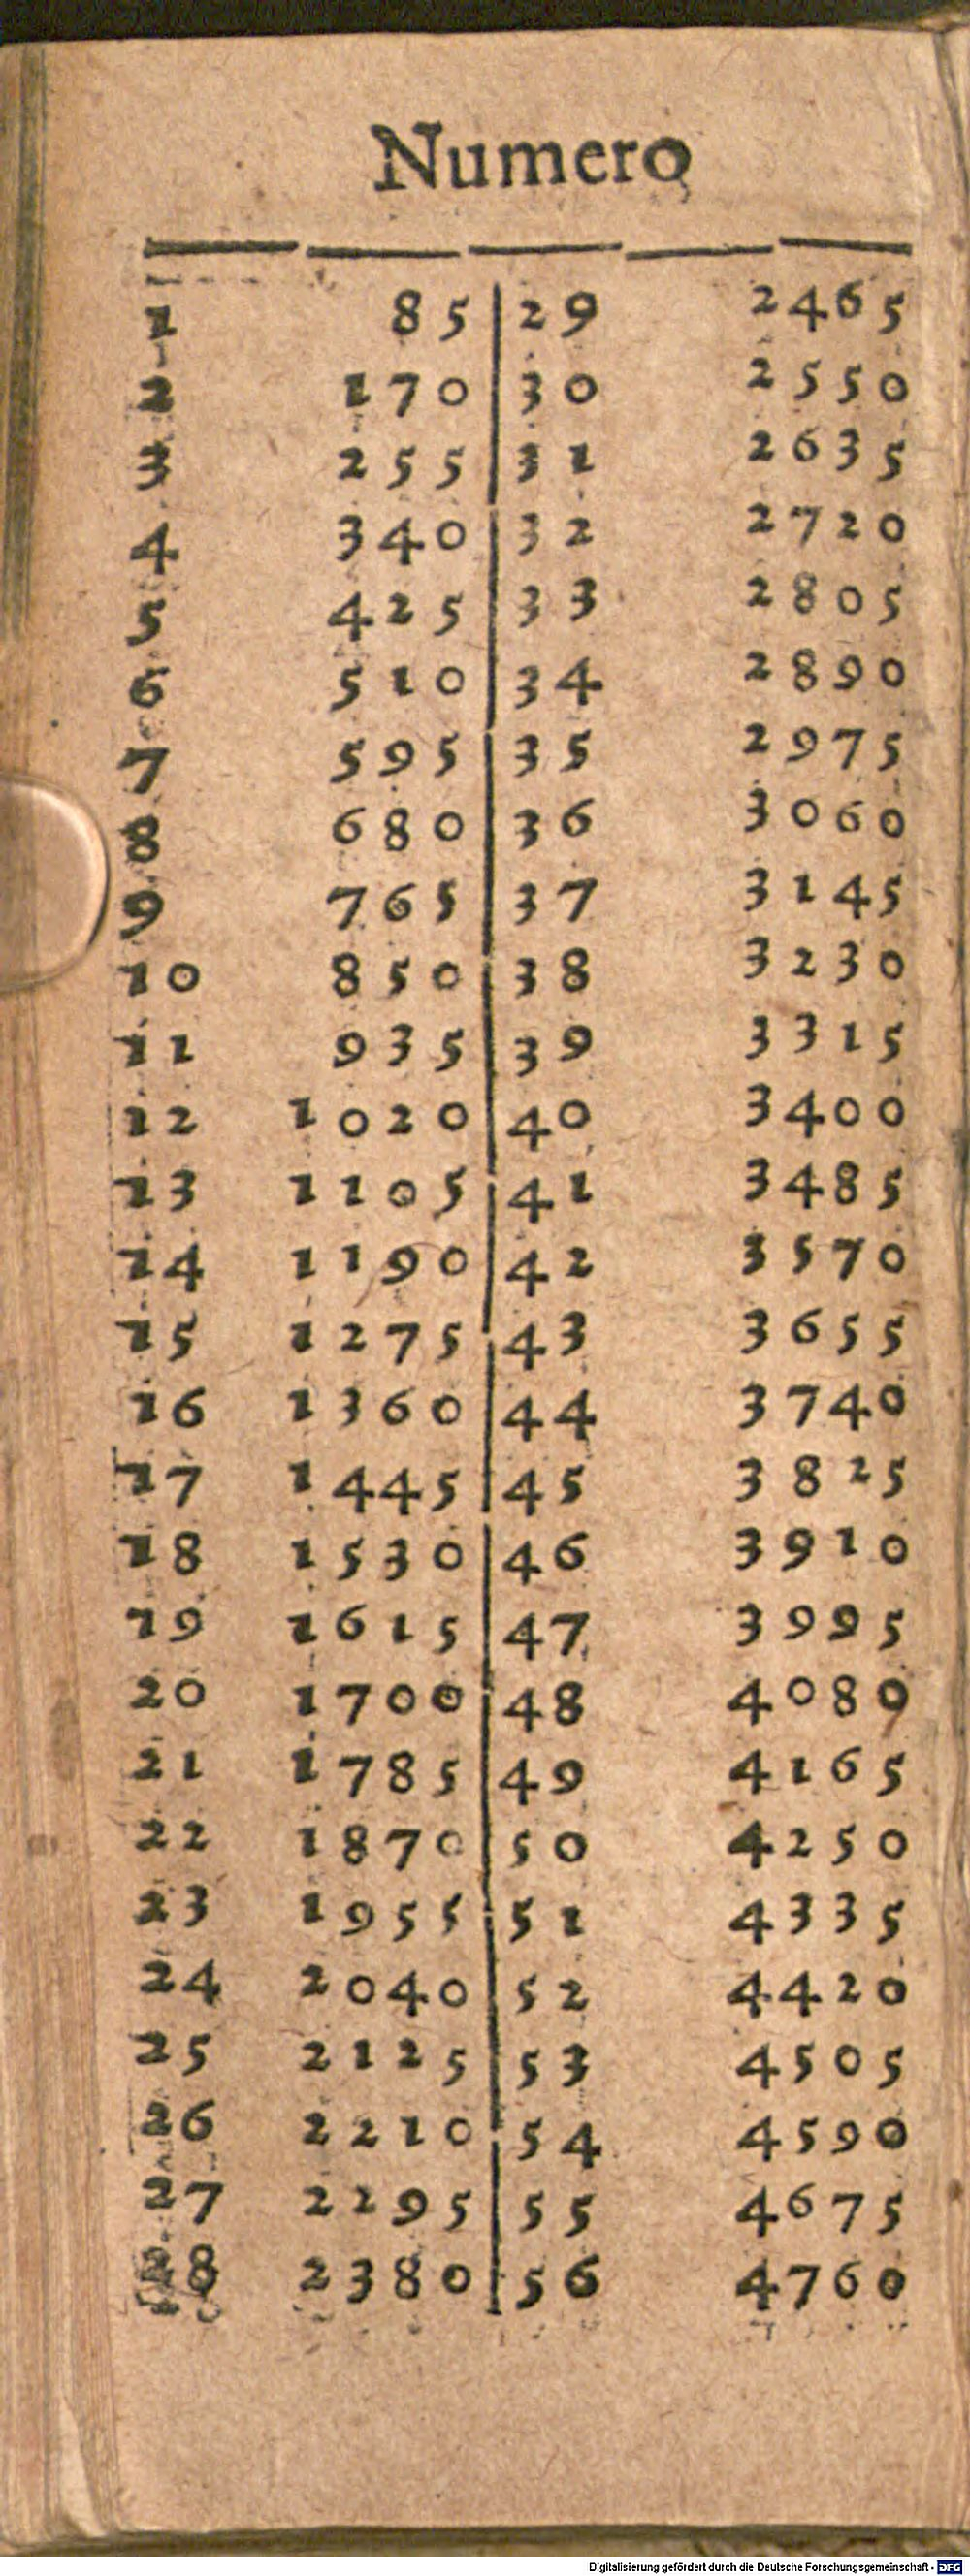 Numero
1 85 29 2465
2 170 30 2550
3 255 31 2635
4 340 32 2720
5 425 33 2805
6 510 34 2890
7 595 35 2975
8 680 36 3060
9 765 37 3145
10 850 38 3230
11 935 39 3315
12 1020 40 3400
13 1105 41 3485
14 1190 42 3570
15 1275 43 3655
16 1360 44 3740
17 1445 45 3825
18 1530 46 3910
19 1615 47 3995
20 1700 48 4089
21 1785 49 4165
22 1870 50 4250
23 1955 51 4335
24 2040 52 4420
25 2125 53 4505
26 2210 54 4590
27 2295 55 4675
28 2380 56 4760
Digitalisierung gefördert durch die Deutsche Forschungsgemeinschaft - DFG